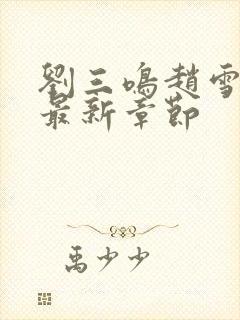 劉三鳴趙雪
最新章節
禹少少